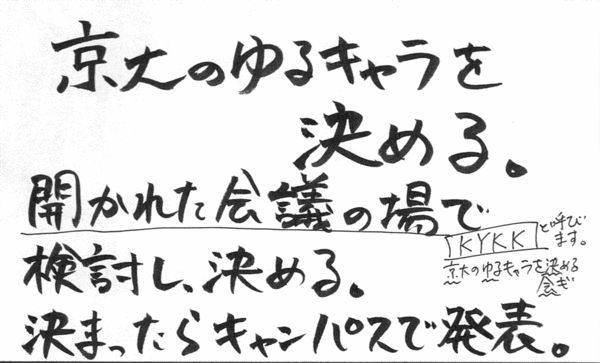 京大のゆるキャラを
決める。
開かれた会議の場で
検討し、決める。
決まったらキャンパスで発表。
KYKK と呼び
ます。
京大のゆるキャラを決める
会ぎ